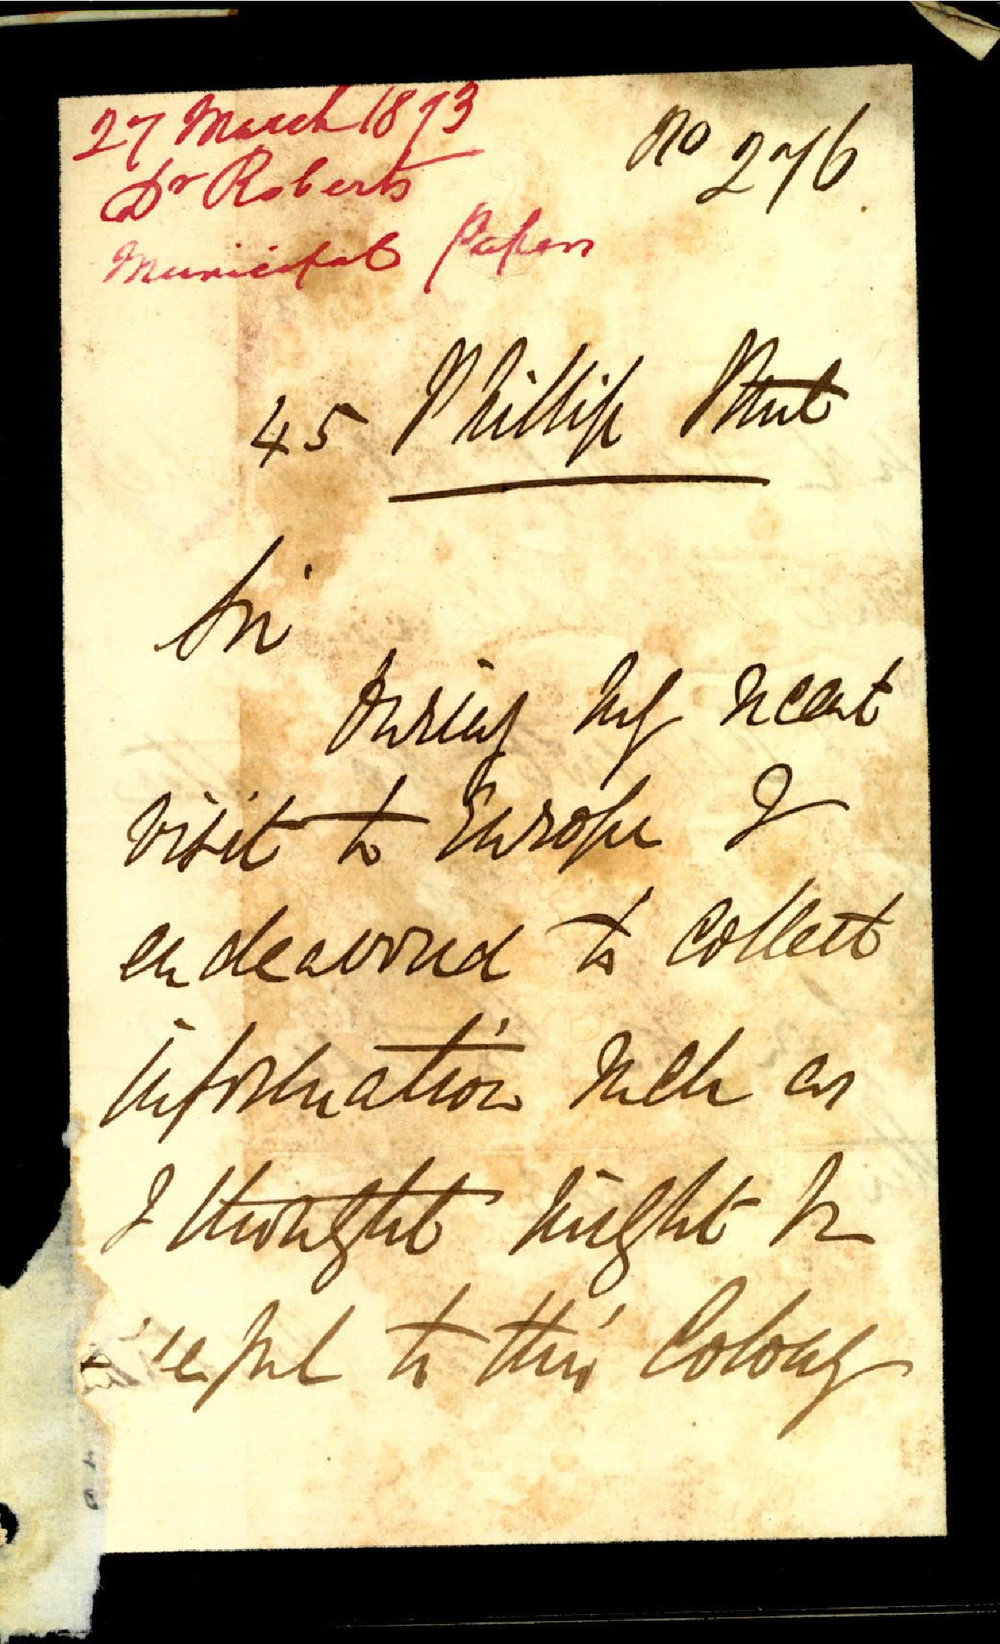 27 March 1873
Dr Roberts
Municipal Papers
No 276.
45 Phillip Street
Sir
During my recent
visit to Europe I
endeavoured to collect
information such as
I thought might be
useful to this Colony